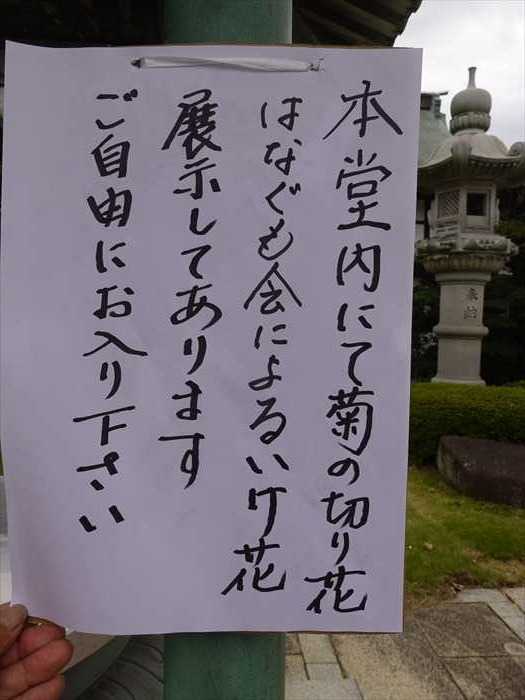 本堂内にて菊の切り花
はなぐも会によるいけ花
展示してあります
ご自由にお入り下さい
奉納